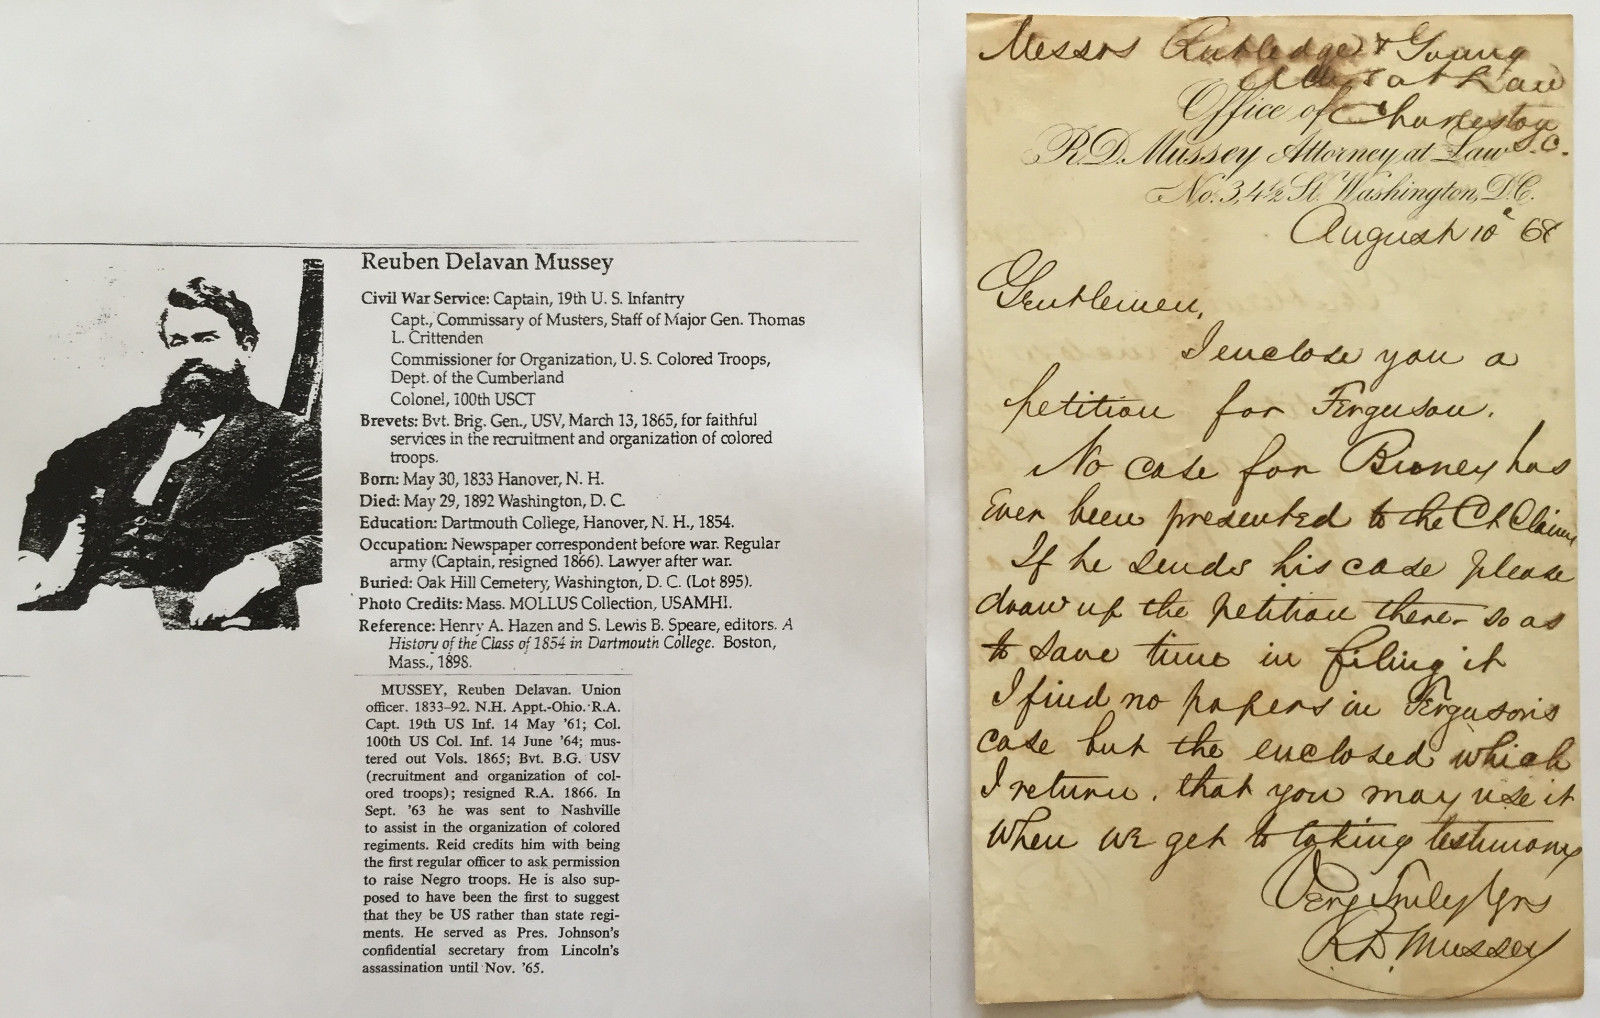 Reuben Delavan Mussey
Civil War Service: Captain, 19th U. S. Infantry
Capt., Commissary of Musters, Staff of Major Gen. Thomas
L. Crittenden
Commissioner for Organization, U. S. Colored Troops,
Dept. of the Cumberland
Colonel, 100th USCT
Brevets: Bvt. Brig. Gen., USV, March 13, 1865, for faithful
services in the recruitment and organization of colored
troops.
Born: May 30, 1833 Hanover, N. H.
Died: May 29, 1892 Washington, D. C.
Education: Dartmouth College, Hanover, N. H., 1854.
Occupation: Newspaper correspondent before war. Regular
army (Captain, resigned 1866). Lawyer after war.
Buried: Oak Hill Cemetery, Washington, D. C. (Lot 895).
Photo Credits: Mass. MOLLUS Collection, USAMHI.
Reference: Henry A. Hazen and S. Lewis B. Speare, editors. A
History of the Class of 1854 in Dartmouth College. Boston,
Mass., 1898.
MUSSEY, Reuben Delavan. Union
officer. 1833–92. N.H. Appt.-Ohio. R.A.
Capt. 19th US Inf. 14 May '61; Col.
100th US Col. Inf. 14 June '64; mus-
tered out Vols. 1865; Bvt. B.G. USV
(recruitment and organization of col-
ored troops); resigned R.A. 1866. In
Sept. '63 he was sent to Nashville
to assist in the organization of colored
regiments. Reid credits him with being
the first regular officer to ask permission
to raise Negro troops. He is also sup-
posed to have been the first to suggest
that they be US rather than state regi-
ments. He served as Pres. Johnson's
confidential secretary from Lincoln's
assassination until Nov. '65.
Messrs Rutledge & Young
at Law
Charleston
S.C.
Office of
R.D. Mussey Attorney at Law
No. 3, 4½ St. Washington, D.C.
August 10 68
Gentlemen,
I enclose you a
petition for Ferguson.
No case for Birney has
ever been presented to the Ct Claims
If he sends his case please
draw up the petition there – so as
to save time in filing it
I find no papers in Ferguson's
case but the enclosed which
I return. that you may use it
when we get to taking testimony
Very Truly Yrs
R.D. Mussey